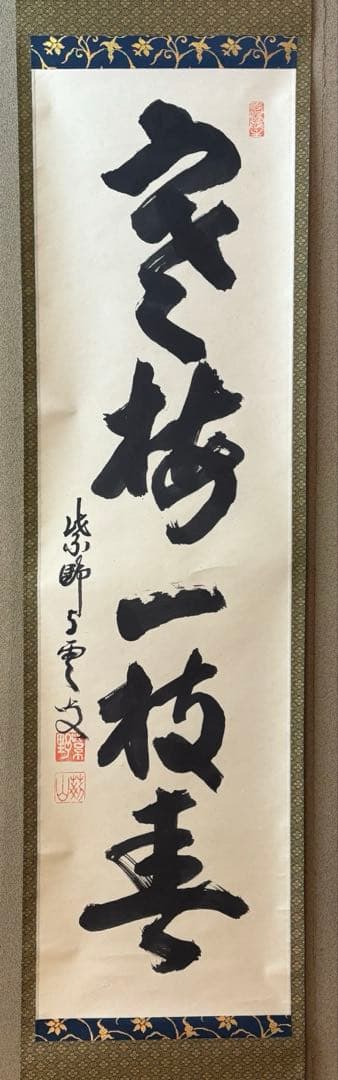 寒梅一枝春
紫野